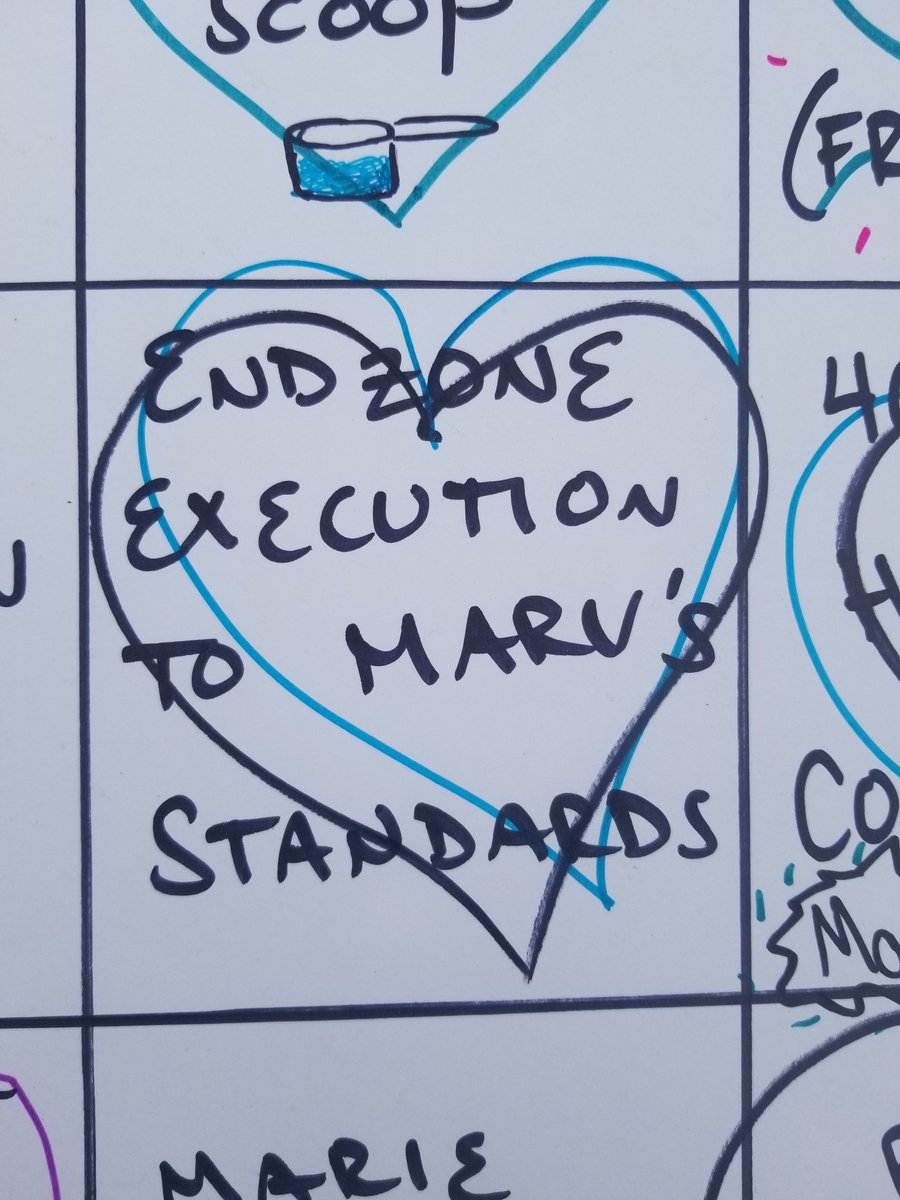 SCOOP
END ZONE
EXECUTION
TO MARV'S
STANDARDS
MARIE